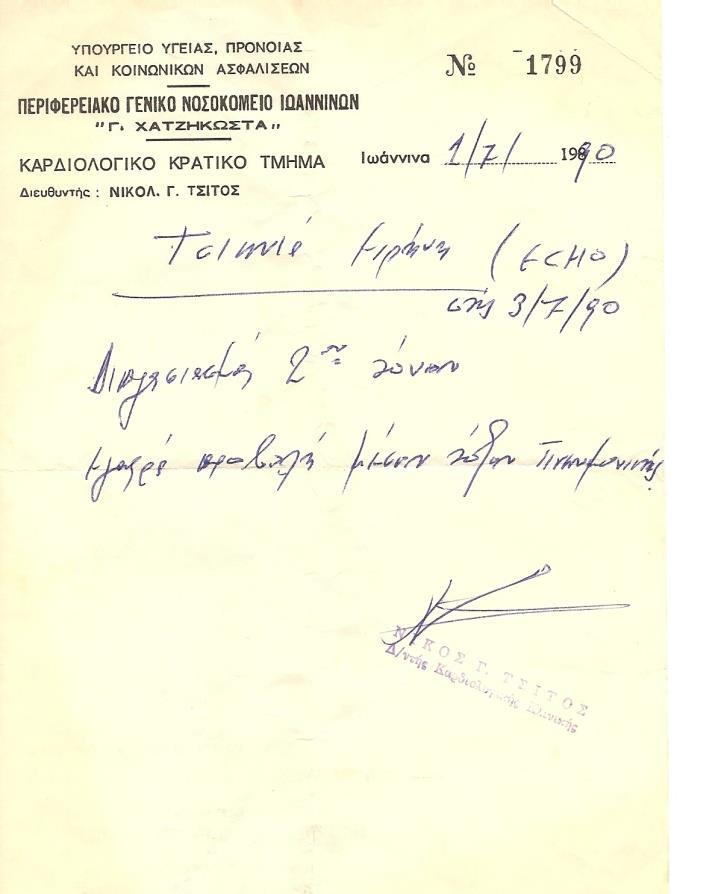 ΥΠΟΥΡΓΕΙΟ ΥΓΕΙΑΣ, ΠΡΟΝΟΙΑΣ
ΚΑΙ ΚΟΙΝΩΝΙΚΩΝ ΑΣΦΑΛΙΣΕΩΝ
№ 1799
ΠΕΡΙΦΕΡΕΙΑΚΟ ΓΕΝΙΚΟ ΝΟΣΟΚΟΜΕΙΟ ΙΩΑΝΝΙΝΩΝ
"Γ. ΧΑΤΖΗΚΩΣΤΑ"
ΚΑΡΔΙΟΛΟΓΙΚΟ ΚΡΑΤΙΚΟ ΤΜΗΜΑ
Ιωάννινα 1/7/ 1990
Διευθυντής : ΝΙΚΟΛ. Γ. ΤΣΙΤΟΣ
Ειρήνη (ECHO)
στις 3/7/90
Διπλασιασμός 2ου τόνου
Ελαφρά προβολή μέσου τόξου πνευμονικής
ΝΙΚΟΣ Γ. ΤΣΙΤΟΣ
Δ/ντής Καρδιολογικής Κλινικής